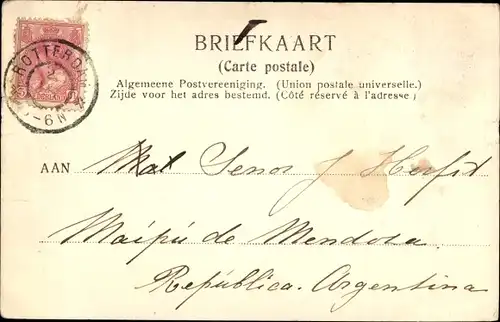 BRIEFKAART
(Carte postale)
Algemeene Postvereeniging. (Union postale universelle.)
Zijde voor het adres bestemd. (Côté réservé à l'adresse.)
ROTTERDA
5-6N
AAN Senor J
Maipú de Mendoza.
República. Argentina